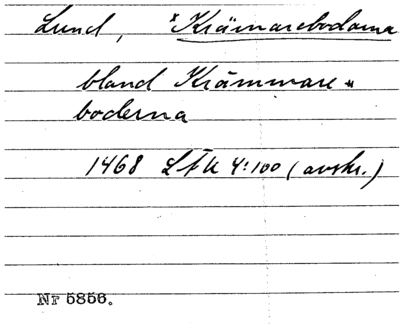 Lund, *Krämareboderna
bland Krämmare=
boderna
1468 LÄU 4:100 (avskr.)
Nr 5856.